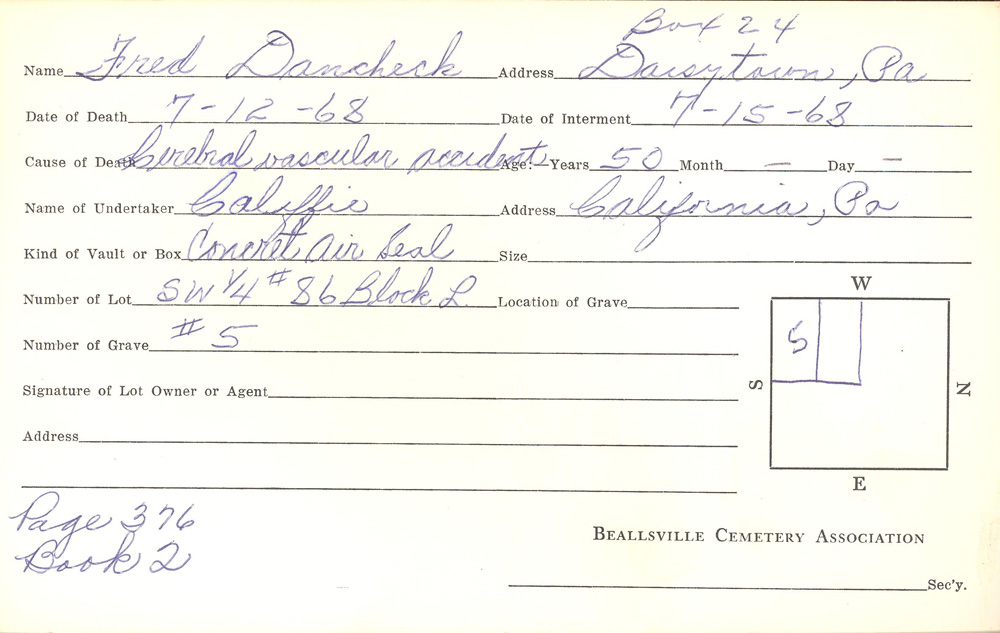 Box 24
Name Fred Dancheck Address Daisytown, Pa
Date of Death 7-12-68 Date of Interment 7-15-68
Cause of Death Cerebral vascular accident Age:—Years 50 Month — Day —
Name of Undertaker Califfie Address California, Pa
Kind of Vault or Box Concret Air Seal Size
Number of Lot SW 1/4 # 86 Block L Location of Grave
W
Number of Grave # 5
5
S
N
Signature of Lot Owner or Agent
Address
E
Page 376
Book 2
BEALLSVILLE CEMETERY ASSOCIATION
Sec'y.